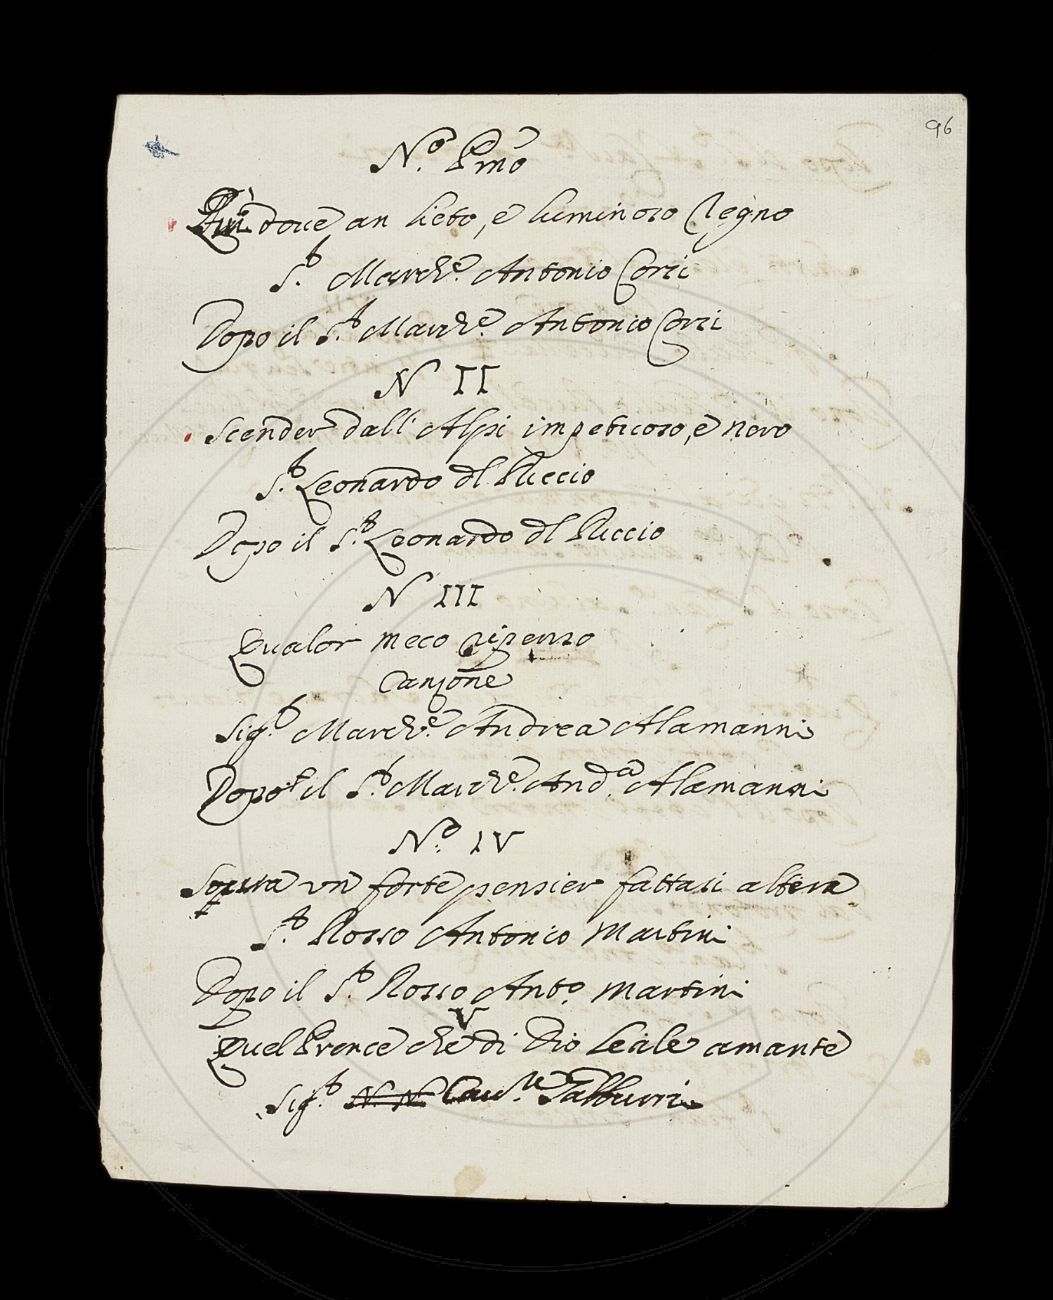 96
N.º Pmo
Più doue an lieto, e luminoso Regno
S.r March.e Antonio Corsi
Dopo il S.r March.e Antonio Corsi
N II
Scender dall' Alpi impetuoso, e nero
S.r Leonardo dl Riccio
Dopo il S.r Leonardo dl Riccio
N III
Qualor meco ripenso
Canzone
Sig.r March.e Andrea Alamanni
Dopo il S.r March.e And.a Alamanni
N.º IV
Soura un forte pensier fattasi altera
S.r Rosso Antonio Martini
Dopo il S.r Rosso Anto. Martini
V
Quel Prence che di Dio leale amante
Sig.r N. N. Cau.re